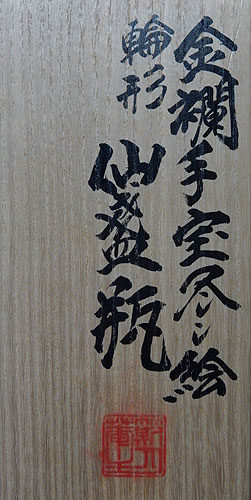 金襴手宝尽シ絵
輪形
仙盞瓶